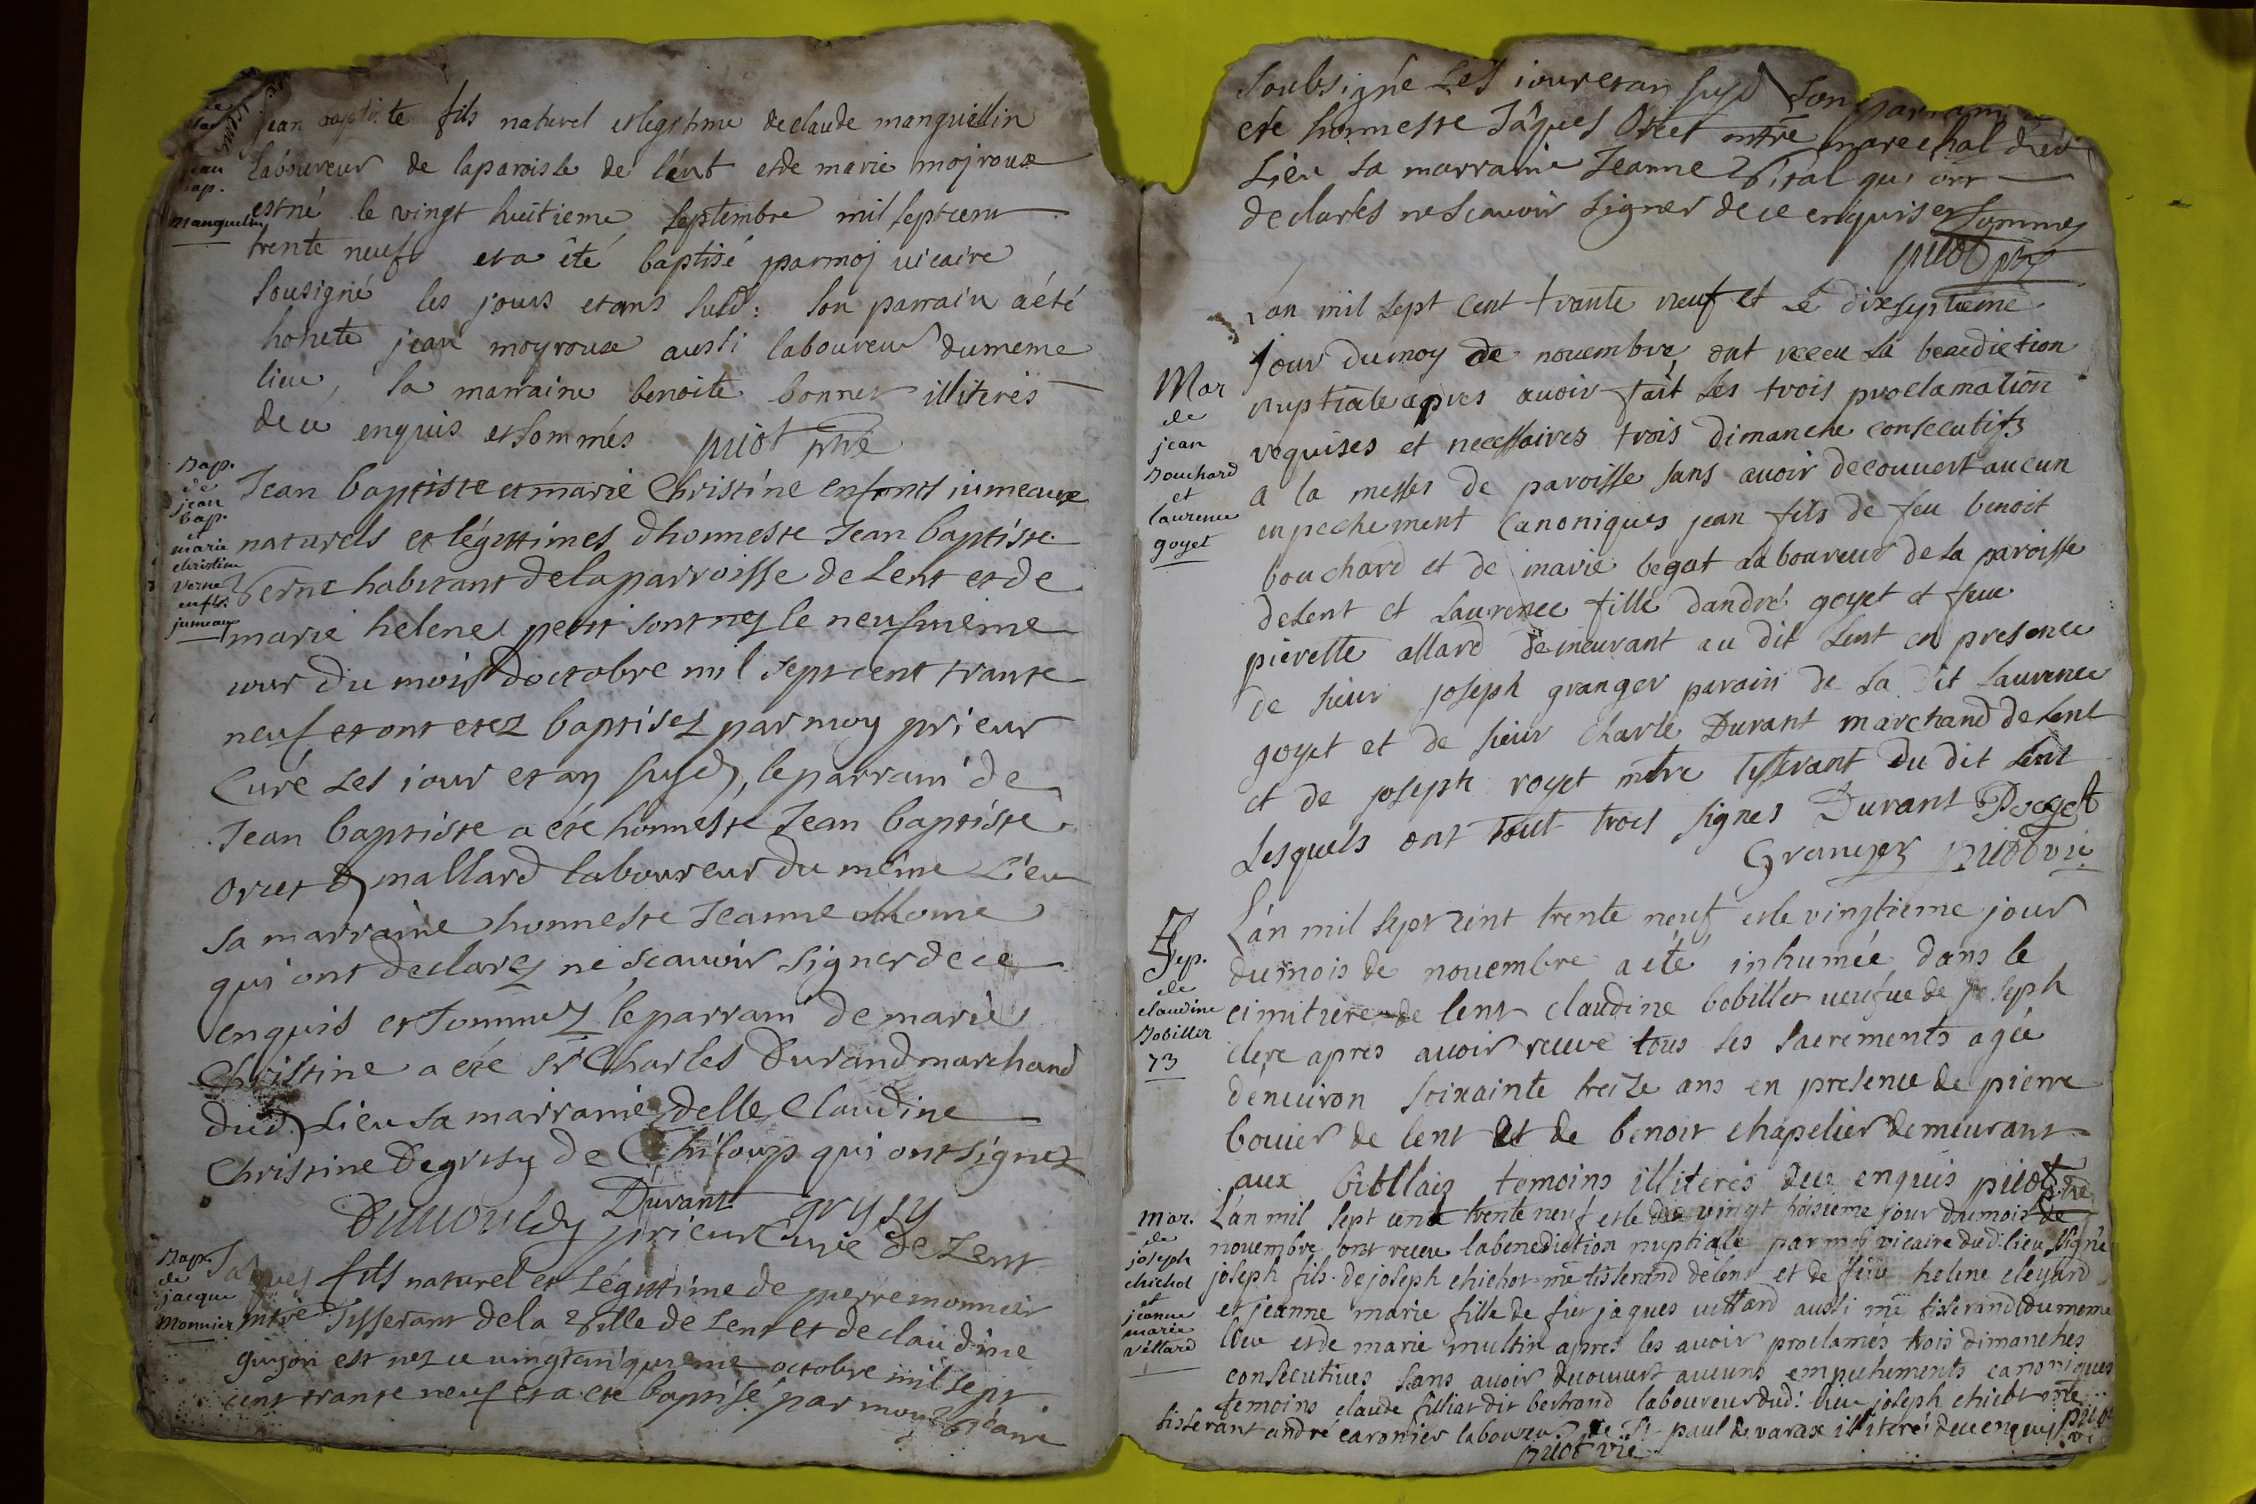 jean baptiste fils naturel et legitime de claude manguellin
laboureur de laparoisse de lent et de marie mojroux
est né le vingt huitieme septembre mil sept cent
trente neuf et a été baptisé par moj vicaire
sousigné les jours et ans susd: son parrain a été
honete jean moyroux aussi laboureur du meme
lieu, la marraine benoite bonnet illiterés
de ce enquis et sommés piiot ptre
jean
bap.
manguellin
Bap.
de
jean
bap.
et
marie
christine
verne
enfts.
jumeaux
Jean baptiste et marie Christine enfants iumeaux
naturels et légittimes d'honneste Jean baptiste
Verne habitant de la parroisse de Lent et de
marie helene petit sont nez le neufvieme
iour du mois d'octobre mil sept cent trante
neuf et ont etez baptisez par moy prieur
Curé Les iour et an susd, le parrain de
Jean baptiste a eté honneste Jean baptiste
mallard laboureur du même Lieu
Sa marraine honneste Jeanne
qui ont declarez ne scavoir signer de ce
enquis et sommez le parrain de marie
Christine a eté Sr Charles Durand marchand
dud Lieu sa marraine delle Claudine
Christine Degrisy de Chiloup qui ont signez
Durant grysy
prieur Curé de Lent
Bap.
de
jacque
Monnier
Jaques fils naturel et Légittime de pierre monnier
mtre Tisserant de la Ville de Lent et de claudine
guyon est nez ce vingt cinquieme octobre mil sept
cent trante neuf et a eté baptisé par moy Vicaire
Soubsigné Les iour et an susd Son parrain
eté honneste Jâques mtre marechal dud
Lieu sa marraine Jeanne Vital qui ont
declarés ne scavoir signer de ce enquis et sommez
piiot ptre
Mar
de
jean
Bouchard
et
laurence
goyet
L'an mil sept cent trante neuf et Le dixseptieme
jour du moy de novembre ont receu la benediction
nuptiale apres avoir fait les trois proclamation
requises et necessaires trois dimanche consecutifs
a la messes de paroisse sans avoir decouvert aucun
enpechement Canoniques jean fils de feu benoit
bouchard et de marie begat laboureur de la paroisse
de Lent et Laurence fille dandré goyet et feue
pierette allard demeurant au dit Lent en presence
de sieur joseph granger parain de La dit Laurence
goyet et de sieur charle Durant marchand de Lent
et de joseph royet mtre tisserant du dit Lent
Lesquels ont tout trois signes Durant Royet
Granger piiot vic
Sep.
de
claudine
Bobillet
73
L'an mil sept cent trente neuf et le vingtieme jour
du mois de novembre a été inhumée dans le
cimitiere de lent claudine bobillet veufve de joseph
clere apres avoir receve tous ses sacrements agée
d'enuiron soixainte treize ans en presence de pierre
bouier de lent et de benoit chapelier demeurant
aux temoins illiterés de ce enquis piiot ptre
mar.
de
joseph
chichot
et
jeanne
marie
villard
L'an mil sept cent trente neuf et le vingt troisieme jour du mois de
novembre ont receu la benediction nuptiale par moj vicaire dud: lieu signé
joseph fils de joseph chichot me tisserand de lent et de feüe helene cleyard
et jeanne marie fille de feu jaques villard aussi me tisserand du meme
lieu et de marie multin apres les avoir proclamés trois dimanches
consecutives sans avoir decouvert aucuns empechements canoniques
temoins claude filliat dit bertrand laboureur dud: lieu joseph chicot me
tisserant andré caronier laboureur de St paul de varax illiteré de ce enquis piiot
piiot vic